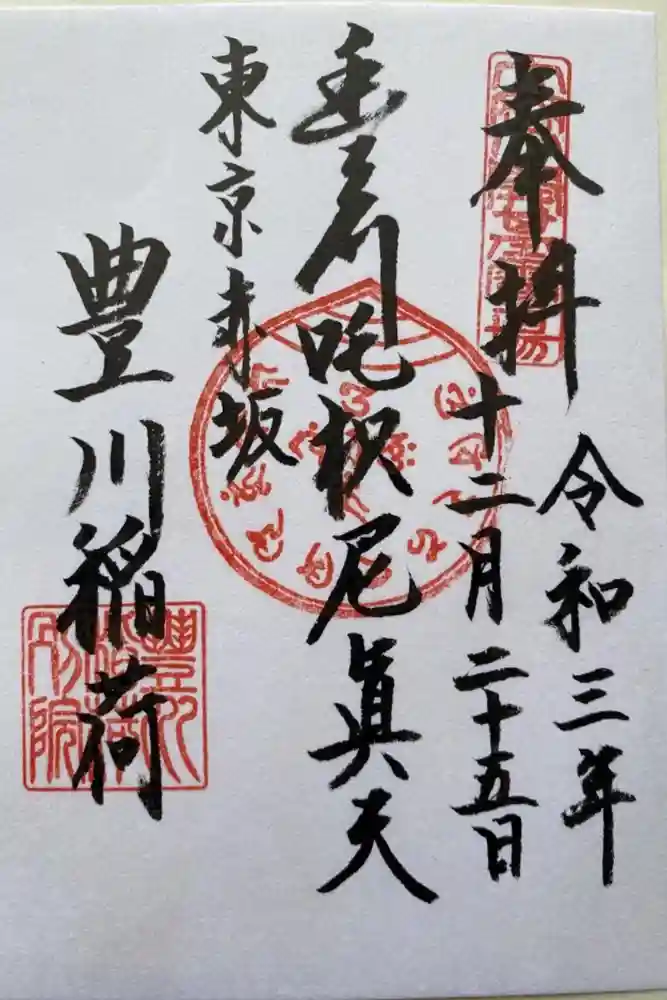 奉拝
令和三年
十二月二十五日
豊川吒枳尼眞天
東京赤坂
豊川稲荷
豐川
稻荷
別院